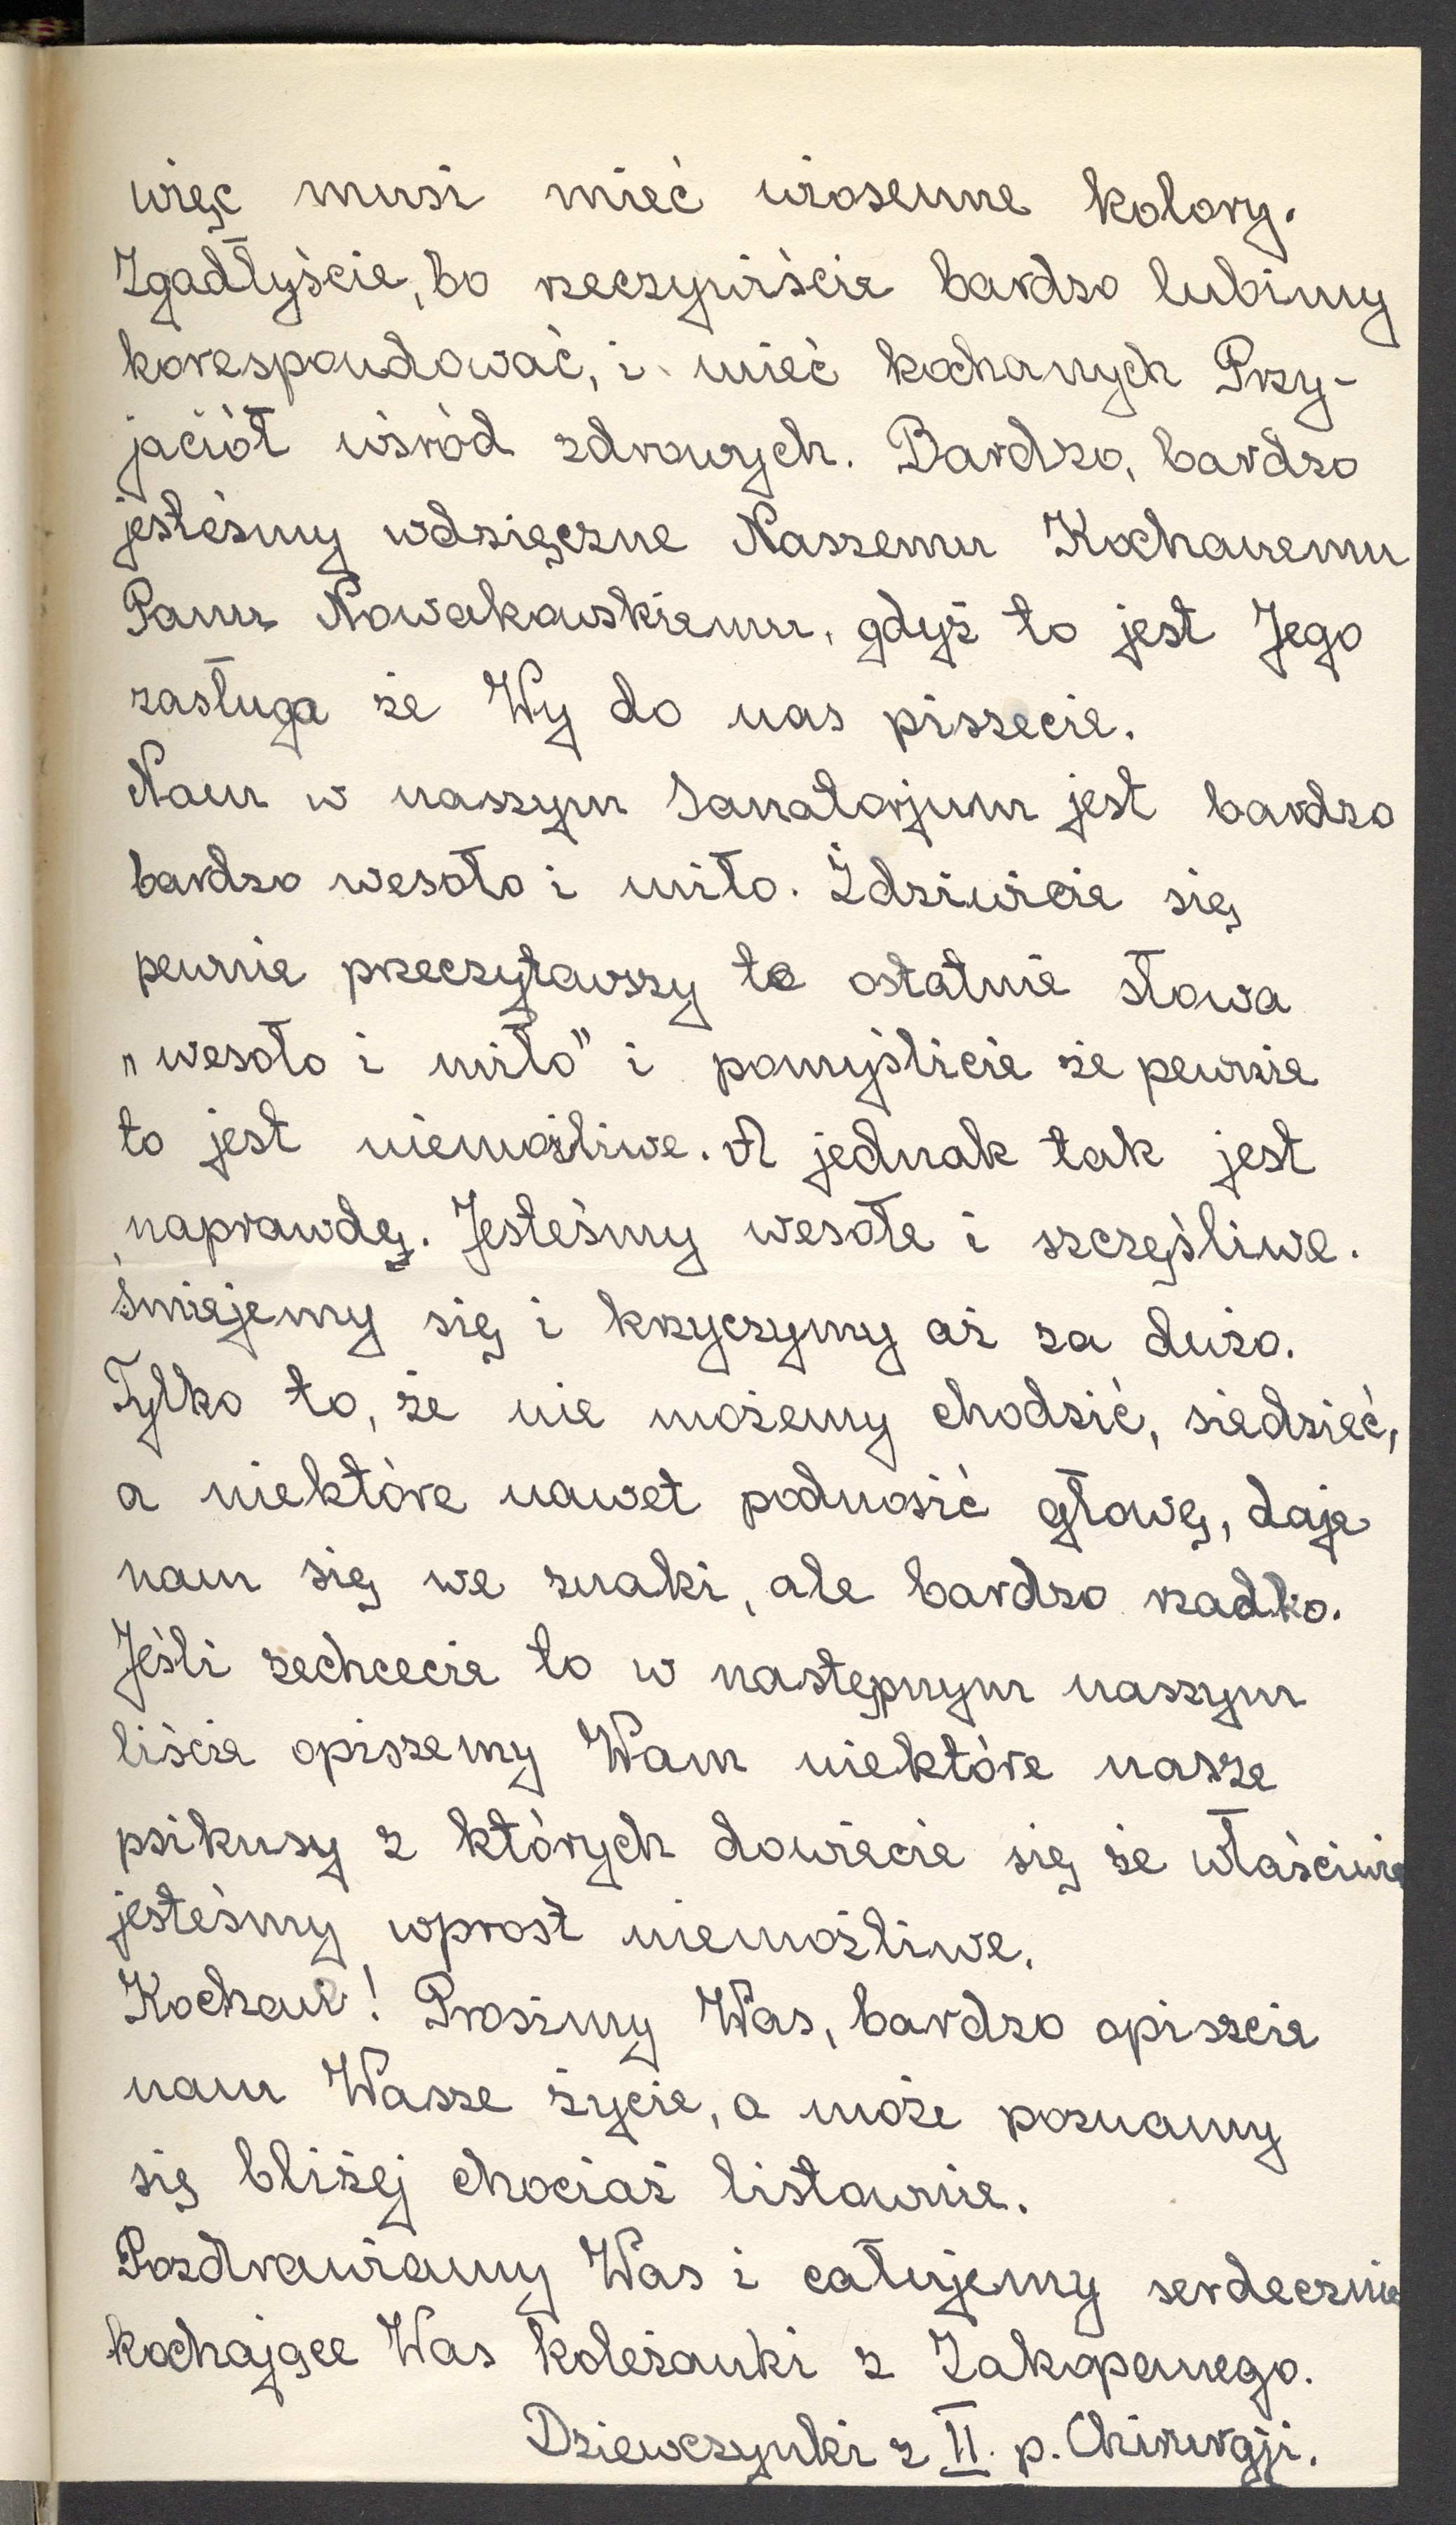 więc musi mieć wiosenne kolory.
Zgadłyście, bo rzeczywiście bardzo lubimy
korespondować, i mieć kochanych Przy-
jaciół wśród zdrowych. Bardzo, bardzo
jesteśmy wdzięczne Naszemu Kochanemu
Panu Nowakowskiemu, gdyż to jest Jego
zasługa że Wy do nas piszecie.
Nam w naszym Sanatorjum jest bardzo
bardzo wesoło i miło. Zdziwicie się
pewnie przeczytawszy te ostatnie słowa
„wesoło i miło" i pomyślicie że pewnie
to jest niemożliwe. A jednak tak jest
naprawdę. Jesteśmy wesołe i szczęśliwe.
Śmiejemy się i krzyczymy aż za dużo.
Tylko to, że nie możemy chodzić, siedzieć,
a niektóre nawet podnosić głowę, daje
nam się we znaki, ale bardzo rzadko.
Jeśli zechcecie to w następnym naszym
liście opiszemy Wam niektóre nasze
psikusy z których dowiecie się że właściwie
jesteśmy wprost niemożliwe.
Kochani! Prosimy Was, bardzo opiszcie
nam Wasze życie, a może poznamy
się bliżej chociaż listownie.
Pozdrawiamy Was i całujemy serdecznie
kochające Was koleżanki z Zakopanego.
Dziewczynki z II. p. Chirurgji.